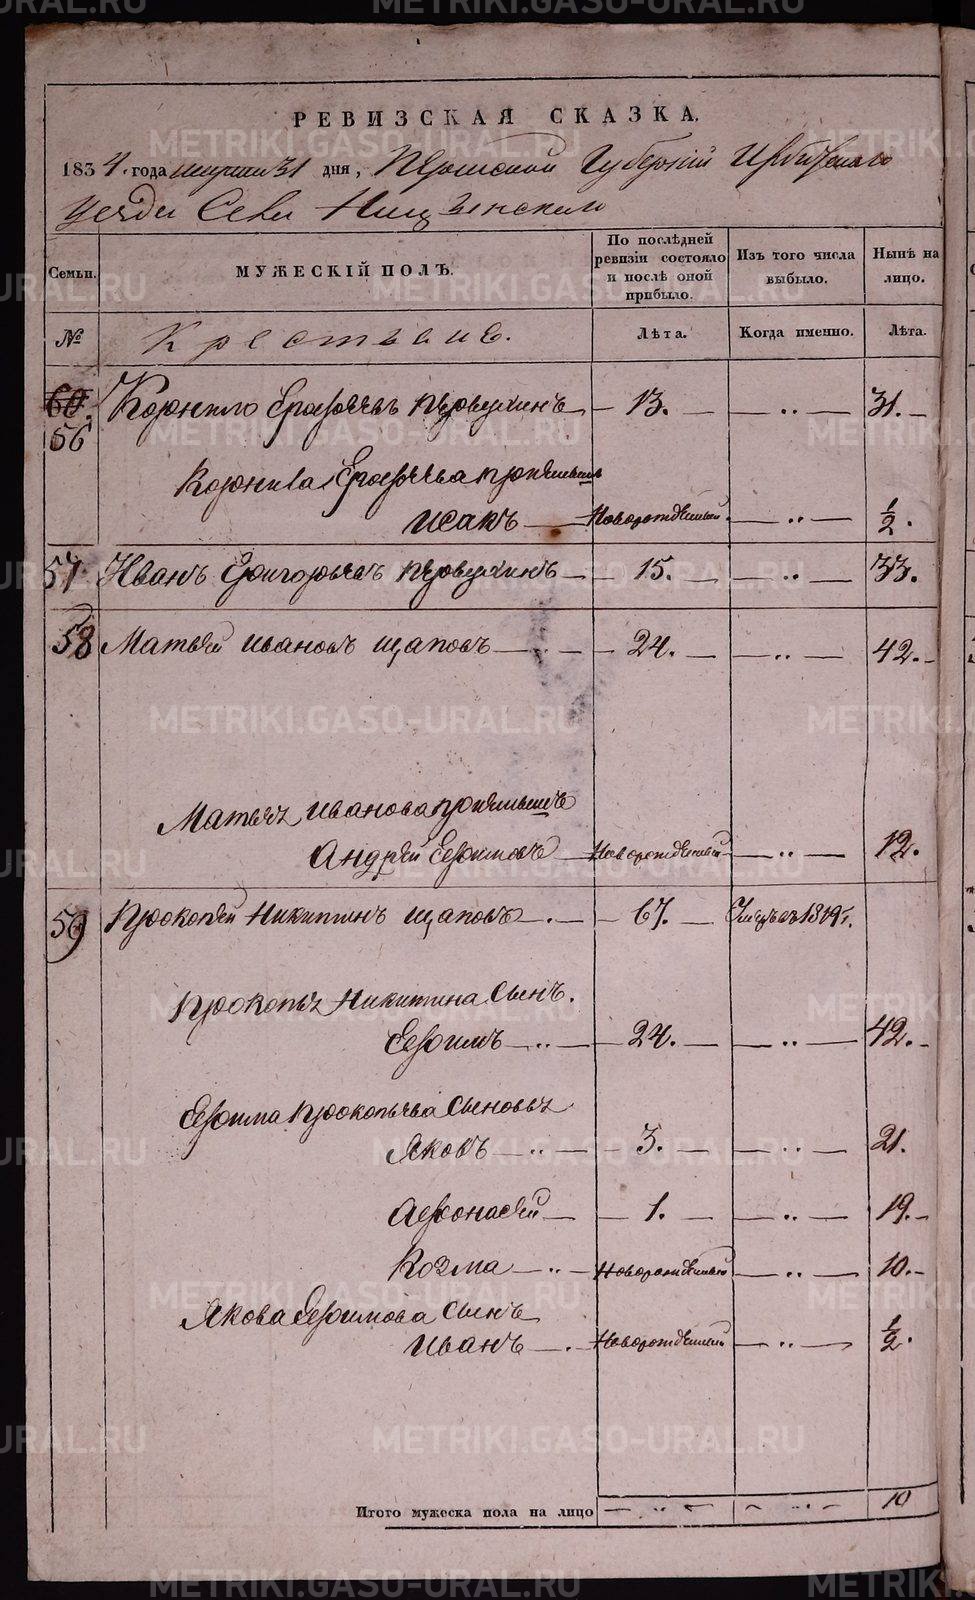 РЕВИЗСКАЯ СКАЗКА.
1834 года марта 31 дня, Пермской Губернiи Ирбитскаго
уезда Села Ницинскаго
Семьи.
МУЖЕСКIЙ ПОЛЪ.
По послѣдней ревизiи состояло и послѣ оной прибыло.
Изъ того числа выбыло.
Нынѣ на лицо.
№
Крестьяне.
Лѣта.
Когда именно.
Лѣта.
60. Корнило Ерофѣевъ Первухинъ 13. 31.
56
Корнила Ерофѣева прiемышъ
Исакъ Новорожденный 1/2.
57 Иванъ Григорьевъ Первухинъ 15. 33.
58 Матвей Ивановъ Щаповъ 24. 42.
Матвея Иванова прiемышъ
Андрей Ефимовъ Новорожденный 12.
59 Прокопей Никитинъ Щаповъ 67. 1819г.
Прокопья Никитина Сынъ.
Ефимъ 24. 42.
Ефима Прокопьева Сыновья
Яковъ 3. 21.
Афонасей 1. 19.
Козма Новорожденный 10.
Якова Ефимова Сынъ
Иванъ Новорожденный 1/2.
Итого мужеска пола на лицо 10
METRIKI.GASO-URAL.RU